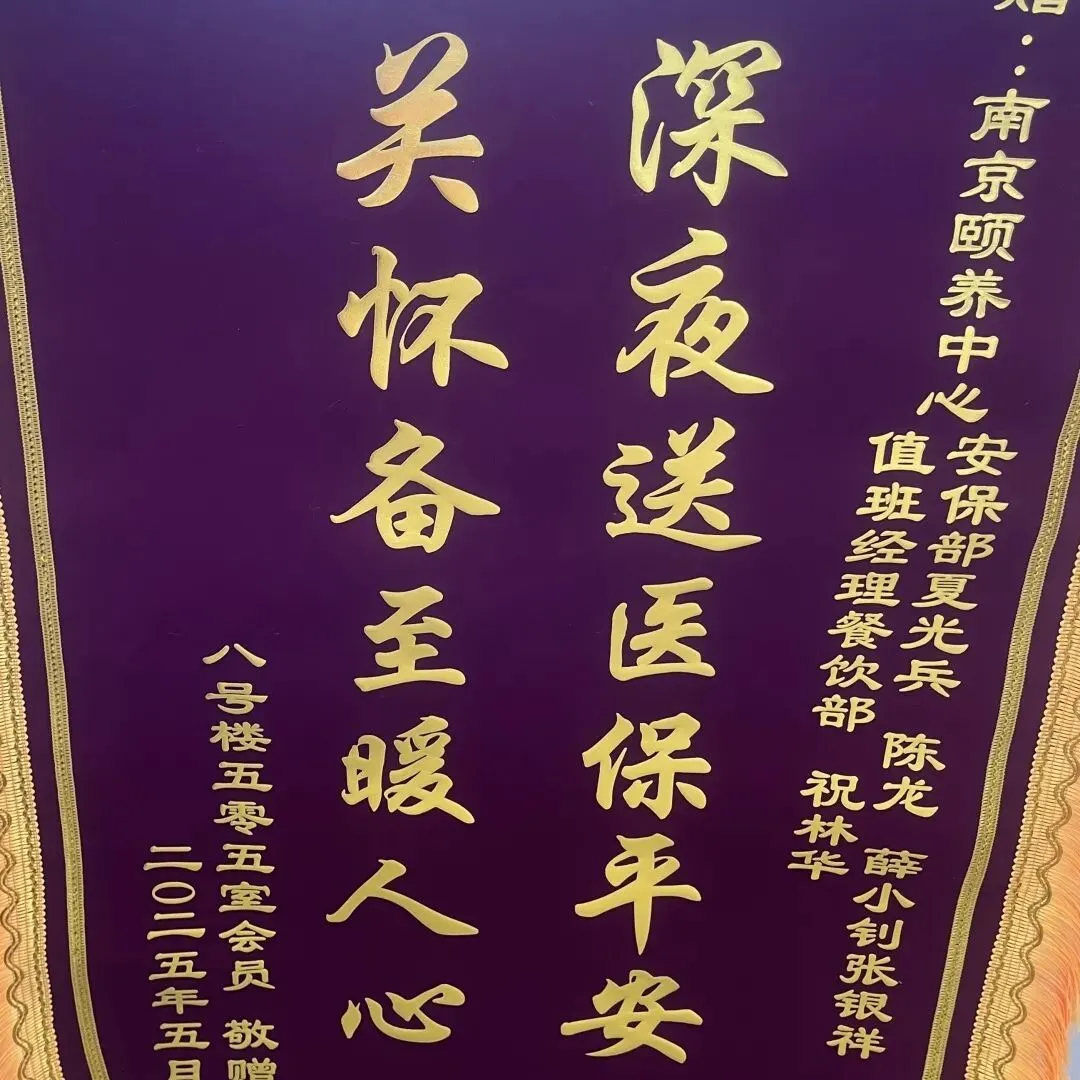 赠：南京颐养中心
安保部夏光兵 陈龙 薛小钊 张银祥
值班经理餐饮部 祝林华
深夜送医保平安
关怀备至暖人心
八号楼五零五室会员 敬赠
二〇二五年五月